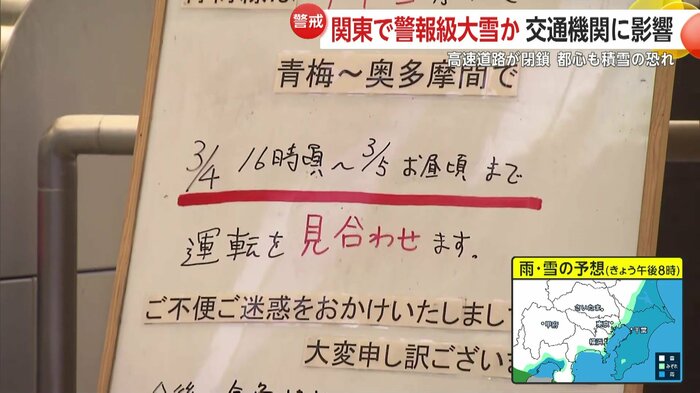 警戒
関東で警報級大雪か 交通機関に影響
高速道路が閉鎖 都心も積雪の恐れ
青梅～奥多摩間で
3/4 16時頃～3/5 お昼頃 まで
運転を見合わせます。
ご不便ご迷惑をおかけいたしまし
大変申し訳ござい
雨・雪の予想(きょう午後8時)
さいたま
甲府
東京
千葉
横浜
雪
みぞれ
雨